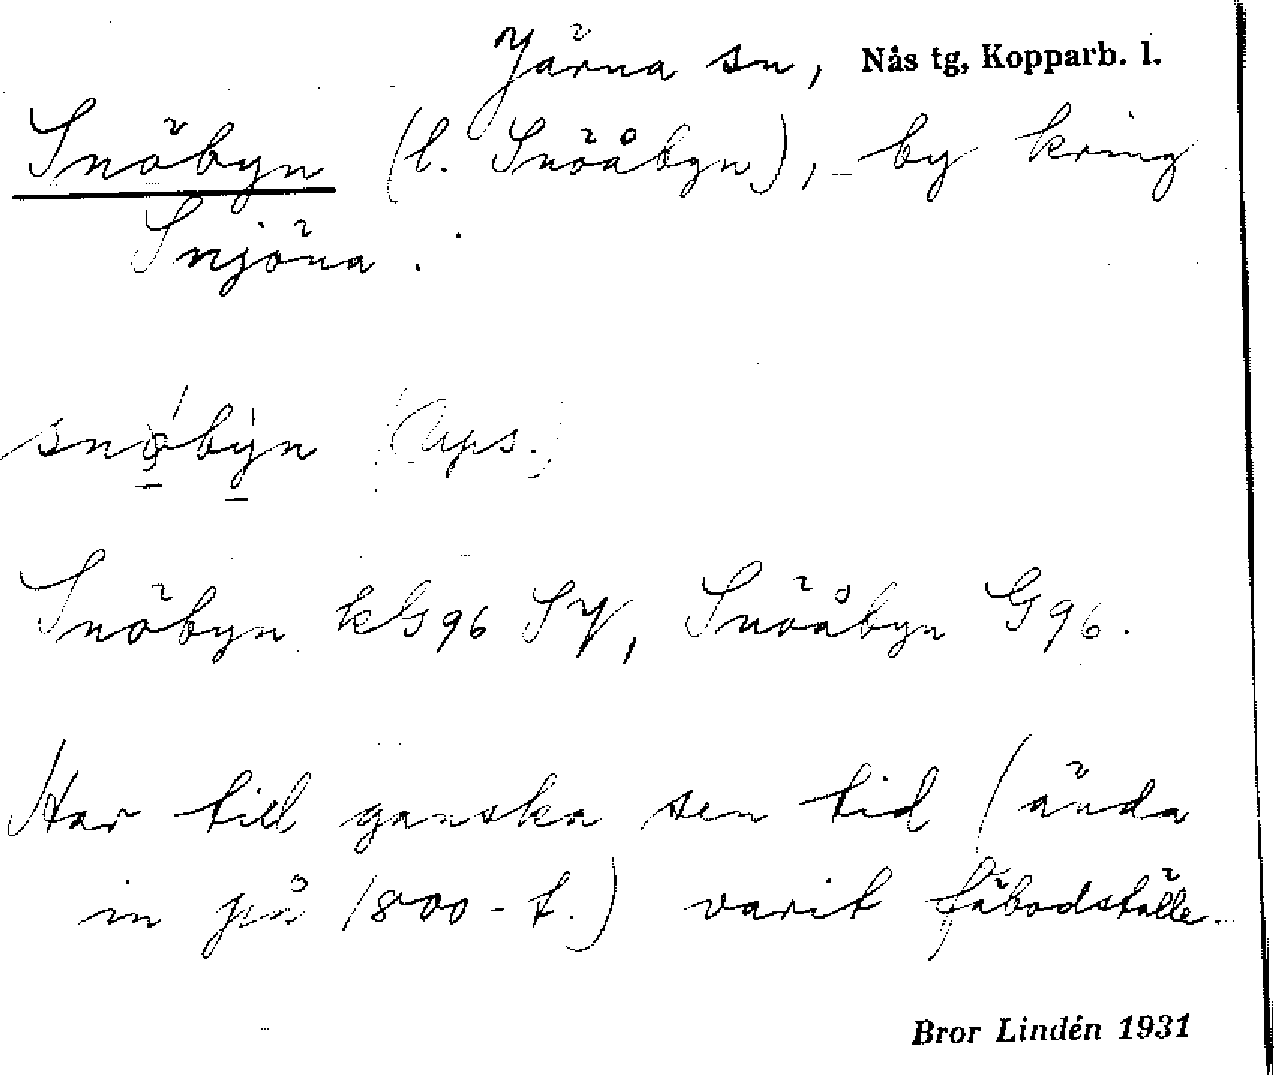 Järna sn, Nås tg, Kopparb. l.
Snöbyn (l. Snöåbyn), by kring
Snjöna.
snöbyn (Ups.)
Snöbyn kG96 SV, Snöåbyn G96.
Har till ganska sen tid (ända
in på 1800-t.) varit fäbodställe.
Bror Lindén 1931